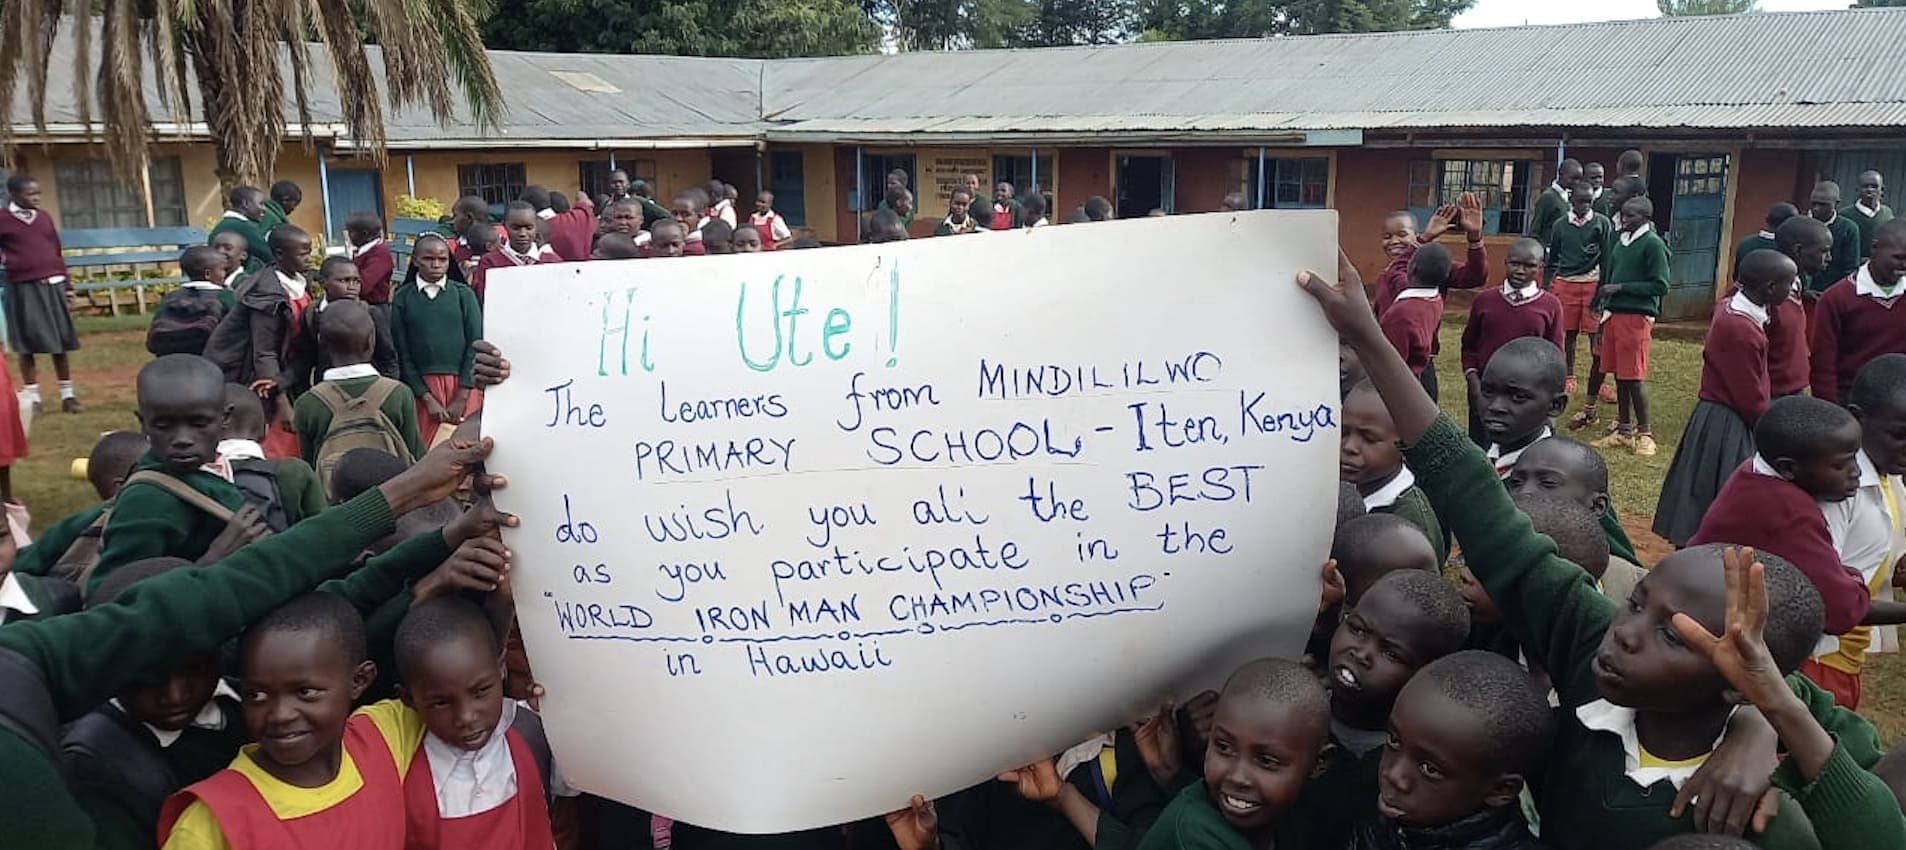 Hi Ute!
The learners from MINDILILWO
PRIMARY SCHOOL - Iten, Kenya
do wish you all the BEST
as you participate in the
"WORLD IRON MAN CHAMPIONSHIP"
in Hawaii